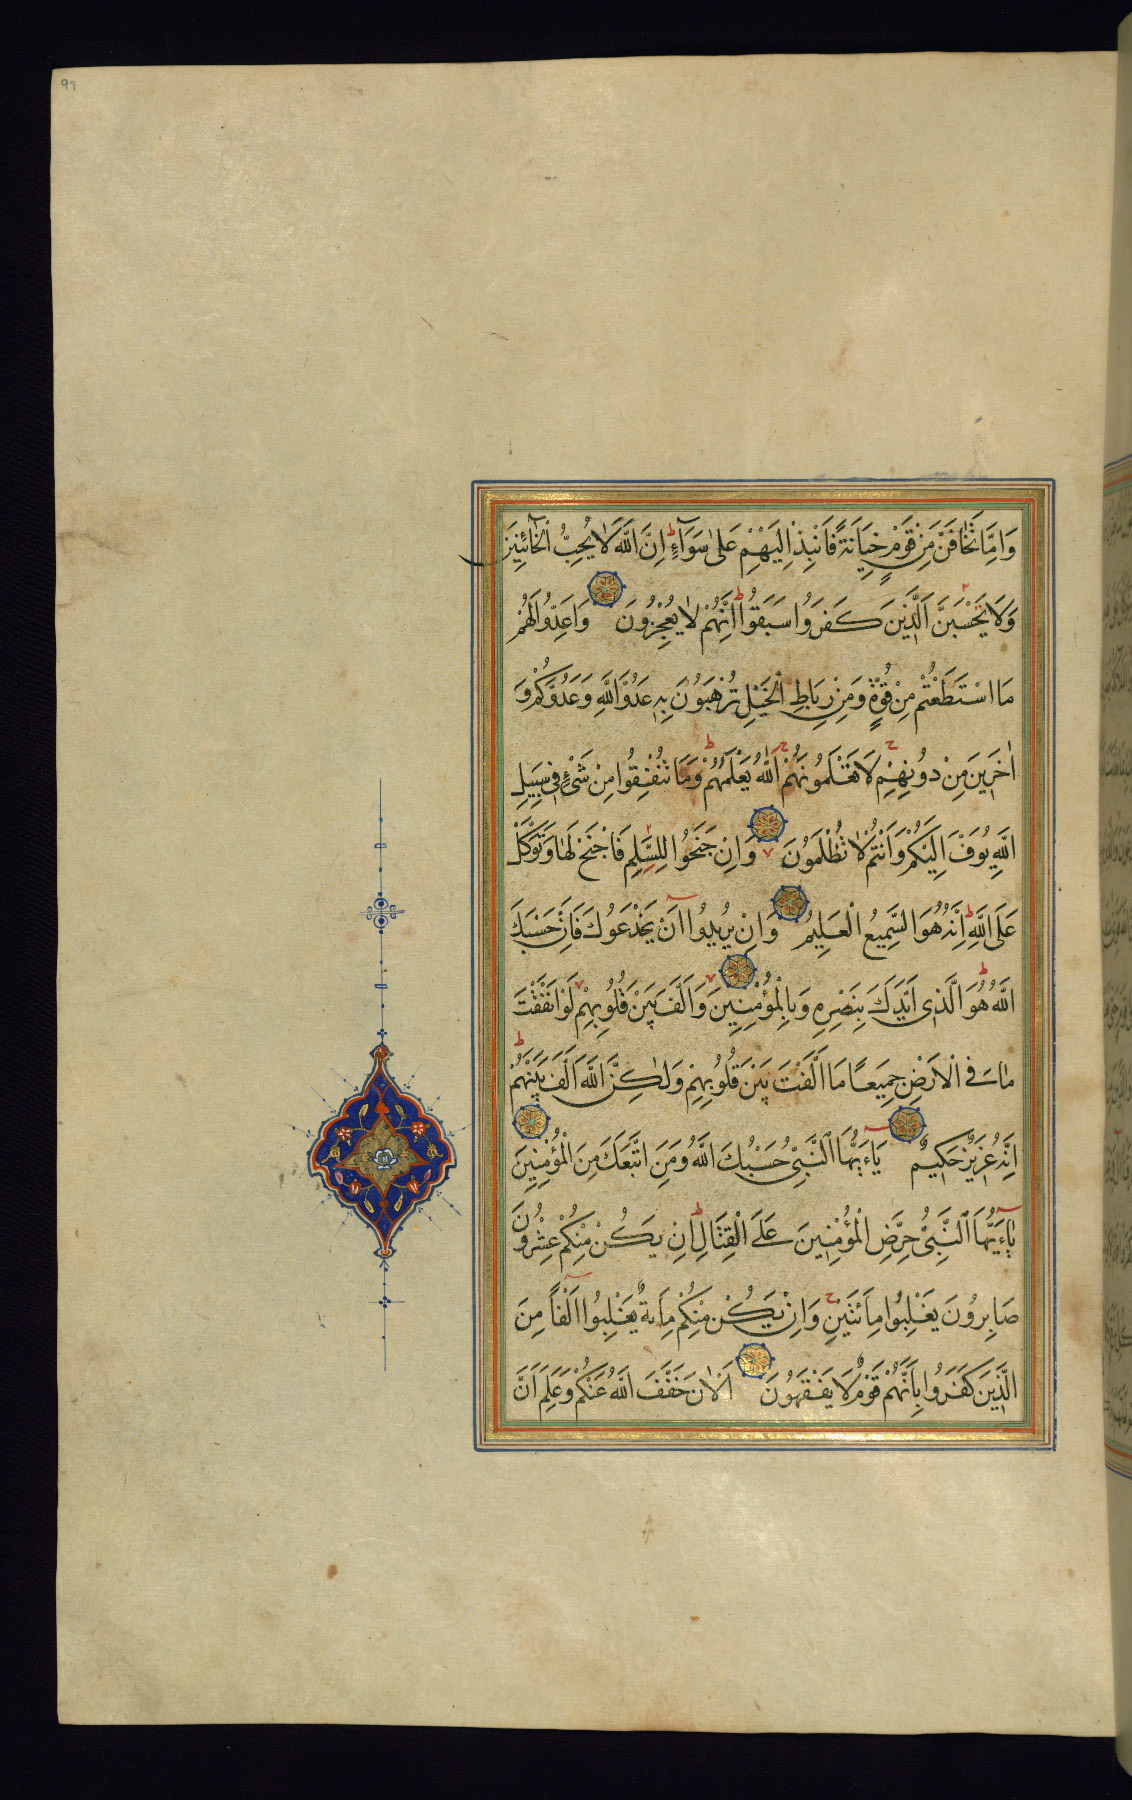 97
وَاِمَّا تَخَافَنَّ مِنْ قَوْمٍ خِيَانَةً فَانْبِذْ اِلَيْهِمْ عَلٰى سَوَآءٍ ط اِنَّ اللّٰهَ لَا يُحِبُّ الْخَآئِنِينَ
وَلَا يَحْسَبَنَّ الَّذِينَ كَفَرُوا سَبَقُوا ط اِنَّهُمْ لَا يُعْجِزُونَ وَاَعِدُّوا لَهُمْ
مَا اسْتَطَعْتُمْ مِنْ قُوَّةٍ وَمِنْ رِبَاطِ الْخَيْلِ تُرْهِبُونَ بِهِ عَدُوَّ اللّٰهِ وَعَدُوَّكُمْ وَ
اٰخَرِينَ مِنْ دُونِهِمْ ج لَا تَعْلَمُونَهُمْ ج اَللّٰهُ يَعْلَمُهُمْ ط وَمَا تُنْفِقُوا مِنْ شَىْءٍ فِى سَبِيلِ
اللّٰهِ يُوَفَّ اِلَيْكُمْ وَاَنْتُمْ لَا تُظْلَمُونَ وَاِنْ جَنَحُوا لِلسَّلْمِ فَاجْنَحْ لَهَا وَتَوَكَّلْ
عَلَى اللّٰهِ ط اِنَّهُ هُوَ السَّمِيعُ الْعَلِيمُ وَاِنْ يُرِيدُوا اَنْ يَخْدَعُوكَ فَاِنَّ حَسْبَكَ
اللّٰهُ ط هُوَ الَّذِى اَيَّدَكَ بِنَصْرِهِ وَبِالْمُؤْمِنِينَ وَاَلَّفَ بَيْنَ قُلُوبِهِمْ لَوْ اَنْفَقْتَ
مَا فِى الْاَرْضِ جَمِيعًا مَا اَلَّفْتَ بَيْنَ قُلُوبِهِمْ وَلٰكِنَّ اللّٰهَ اَلَّفَ بَيْنَهُمْ ط
اِنَّهُ عَزِيزٌ حَكِيمٌ يَاءَيُّهَا النَّبِىُّ حَسْبُكَ اللّٰهُ وَمَنِ اتَّبَعَكَ مِنَ الْمُؤْمِنِينَ
يَاءَيُّهَا النَّبِىُّ حَرِّضِ الْمُؤْمِنِينَ عَلَى الْقِتَالِ ط اِنْ يَكُنْ مِنْكُمْ عِشْرُونَ
صَابِرُونَ يَغْلِبُوا مِائَتَيْنِ ج وَاِنْ يَكُنْ مِنْكُمْ مِائَةٌ يَغْلِبُوا اَلْفًا مِنَ
الَّذِينَ كَفَرُوا بِاَنَّهُمْ قَوْمٌ لَا يَفْقَهُونَ اَلْاٰنَ خَفَّفَ اللّٰهُ عَنْكُمْ وَعَلِمَ اَنَّ